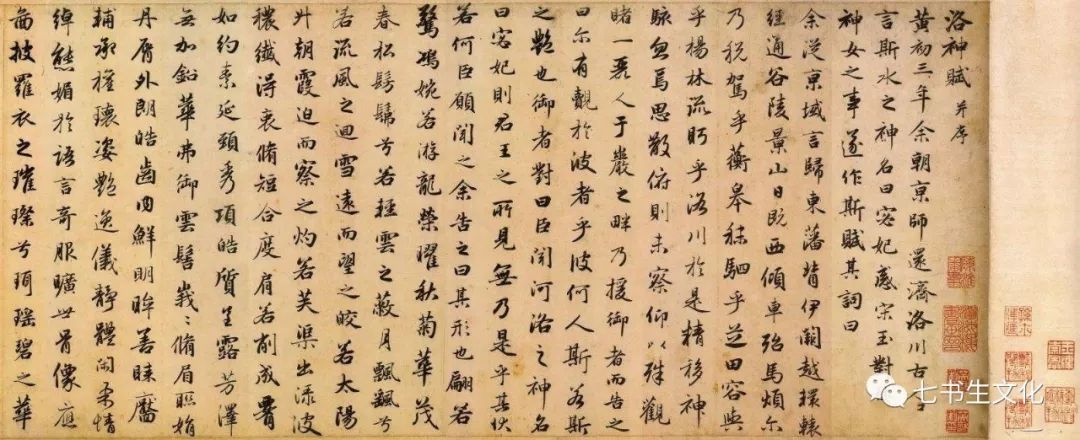 洛神賦 并序
黃初三年余朝京師還濟洛川古
言斯水之神名曰宓妃感宋玉對
神女之事遂作斯賦其詞曰
余從京域言歸東藩背伊闕越轘轅
經通谷陵景山日既西傾車殆馬煩尔
乃稅駕乎蘅皋秣駟乎芝田容與
乎楊林流眄乎洛川於是精移神
駭忽焉思散俯則未察仰以殊觀
睹一麗人于巖之畔乃援御者而告之
曰尔有覿於彼者乎彼何人斯若斯
之豔也御者對曰臣聞河洛之神名
曰宓妃則君王之所見無乃是乎其狀
若何臣願聞之余告之曰其形也翩若
驚鴻婉若游龍榮曜秋菊華茂
春松髣髴兮若輕雲之蔽月飄飄兮
若流風之迴雪遠而望之皎若太陽
升朝霞迫而察之灼若芙蕖出淥波
穠纖得衷脩短合度肩若削成
如約素延頸秀項皓質呈露芳澤
無加鉛華弗御雲髻峩〻脩眉聯娟
丹脣外朗皓齒內鮮明眸善睞靨
輔承權瓌姿艷逸儀靜體閑柔情
綽態媚於語言奇服曠世骨像應
圖披羅衣之璀璨兮珥瑤碧之華
七书生文化